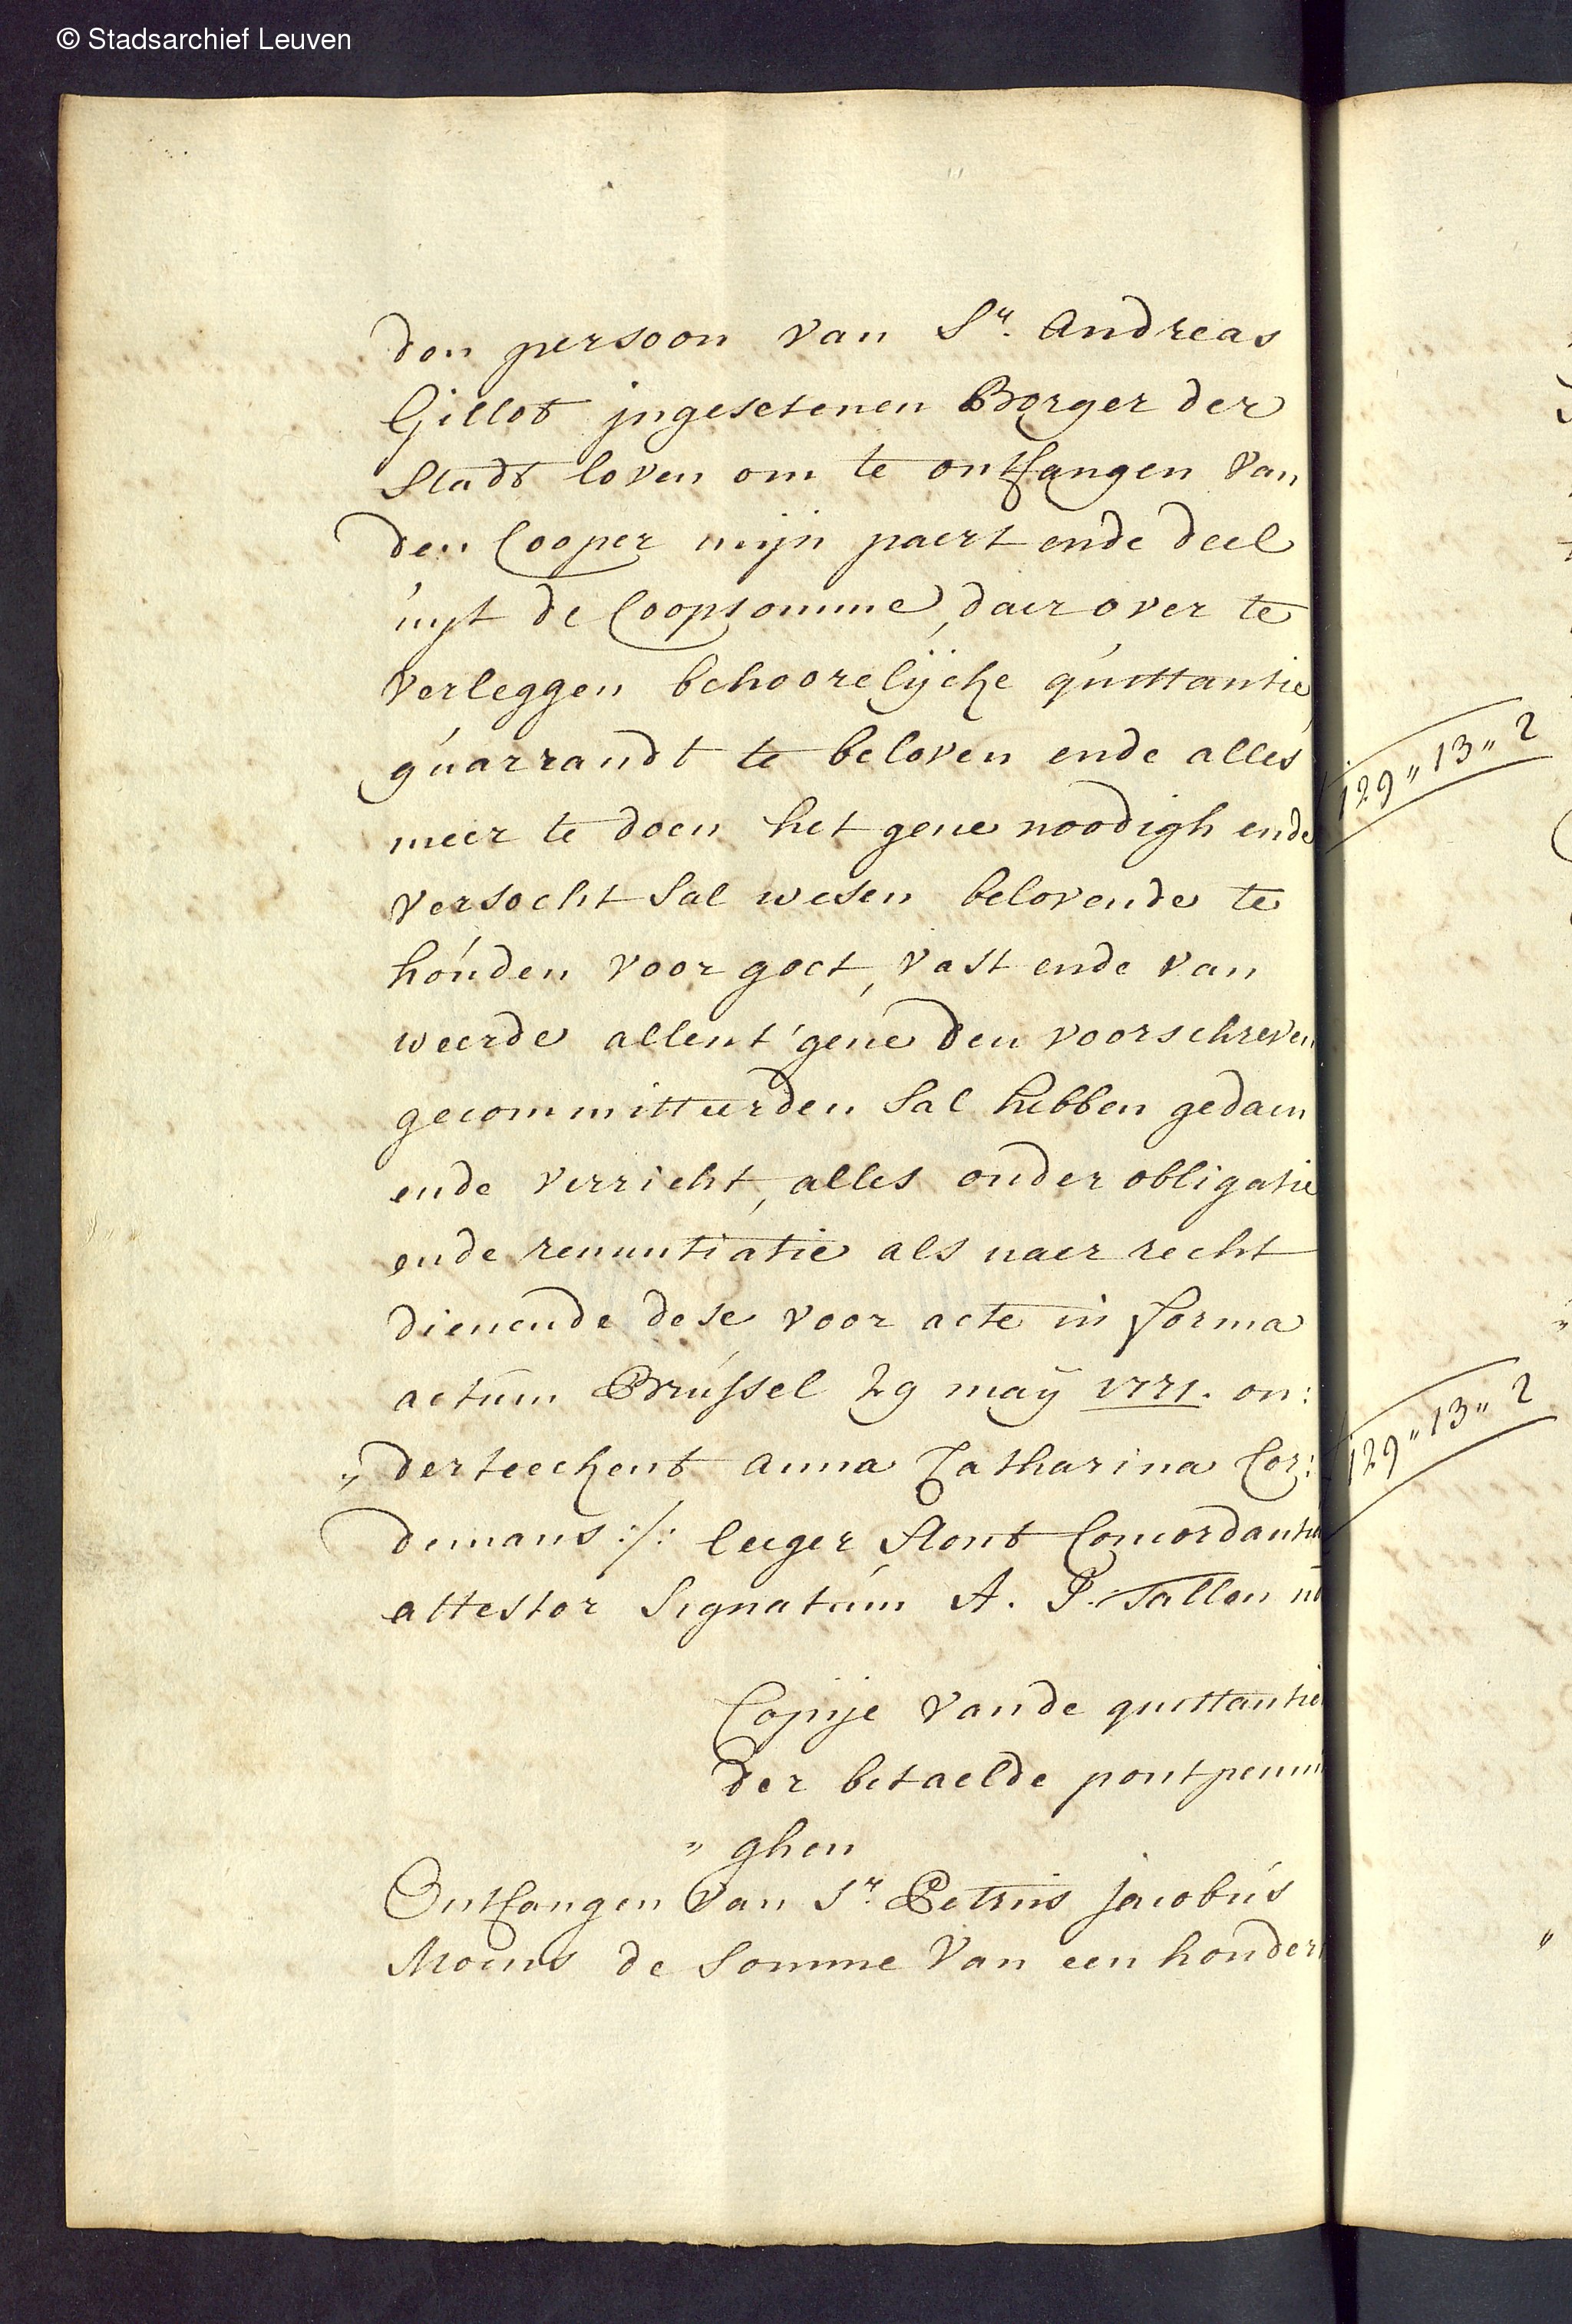 © Stadsarchief Leuven
den persoon van Sr. Andreas
Gillot jngesetenen Borger der
Stadt loven om te ontfangen van
den Cooper mijn paert ende deel
uyt de Coopsomme, daer over te
verleggen behoorelijcke quittantie,
guarrandt te beloven ende alles
meer te doen het gene noodigh ende
versocht sal wesen belovende te
houden voor goet, vast ende van
weerde allent' gene den voorschreven
gecommitteerden sal hebben gedaen
ende verricht, alles onder obligatie
ende renuntiatie als naer recht
dienende dese voor acte in forma
actum Brussel 29 maÿ 1771. on:
„ derteeckent anna Catharina Cor:
demans :/: leeger stont Concordantia
attestor Signatum A. P. Tallon
Copije vande quittantie
der betaelde pontpenni
„ ghen
Ontfangen van Sr. Petrus jacobus
Moens de somme van een hondert
129 „ 13 „ 2
129 „ 13 „ 2